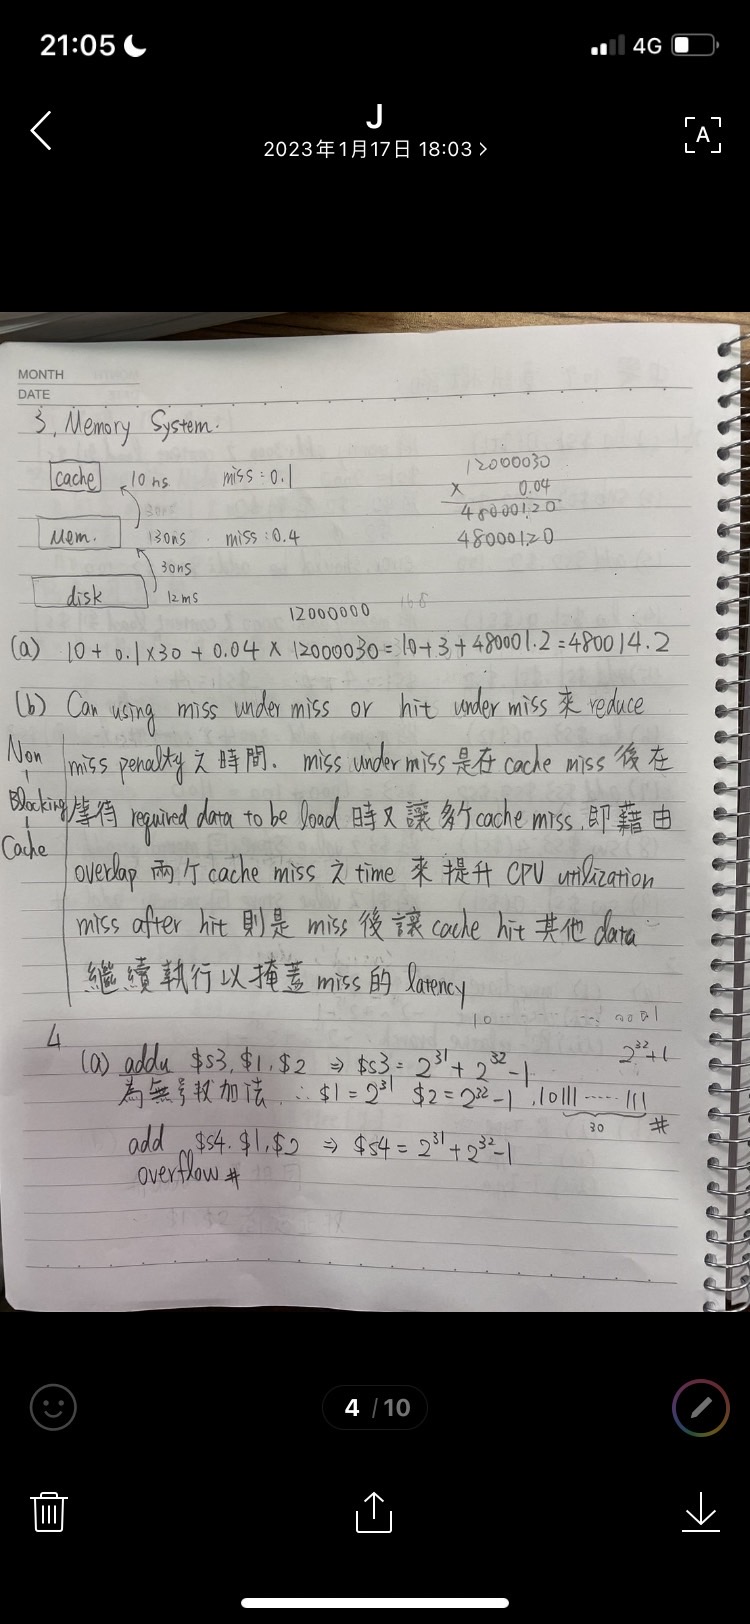 21:05
4G
J
2023年1月17日 18:03 >
A
MONTH
DATE
3. Memory System.
cache 10 ns miss: 0.1
12000030
x 0.04
4800012.0
Mem. 130ns miss: 0.4
48000120
30ns
disk 12ms
12000000
(a) 10 + 0.1×30 + 0.04 × 12000030 = 10+3+480001.2 = 480014.2
(b) Can using miss under miss or hit under miss 來 reduce
miss penalty 之 時間. miss under miss 是在 cache miss 後 在
等待 required data to be load 時又讓多个 cache miss, 即藉由
overlap 兩个 cache miss 之 time 來 提升 CPU utilization
miss after hit 則是 miss 後 讓 cache hit 其他 data
繼續執行以掩蓋 miss 的 latency
Non
-
Blocking
-
Cache
4
(a) addu $s3, $1, $2 ⇒ $s3 = 2^31 + 2^32 - 1
2^32+1
為無号数加法 ∴ $1 = 2^31 $2 = 2^32 - 1 , 10111 ······ 111
30 #
add $s4. $1, $2 ⇒ $s4 = 2^31 + 2^32 - 1
overflow #
4 / 10